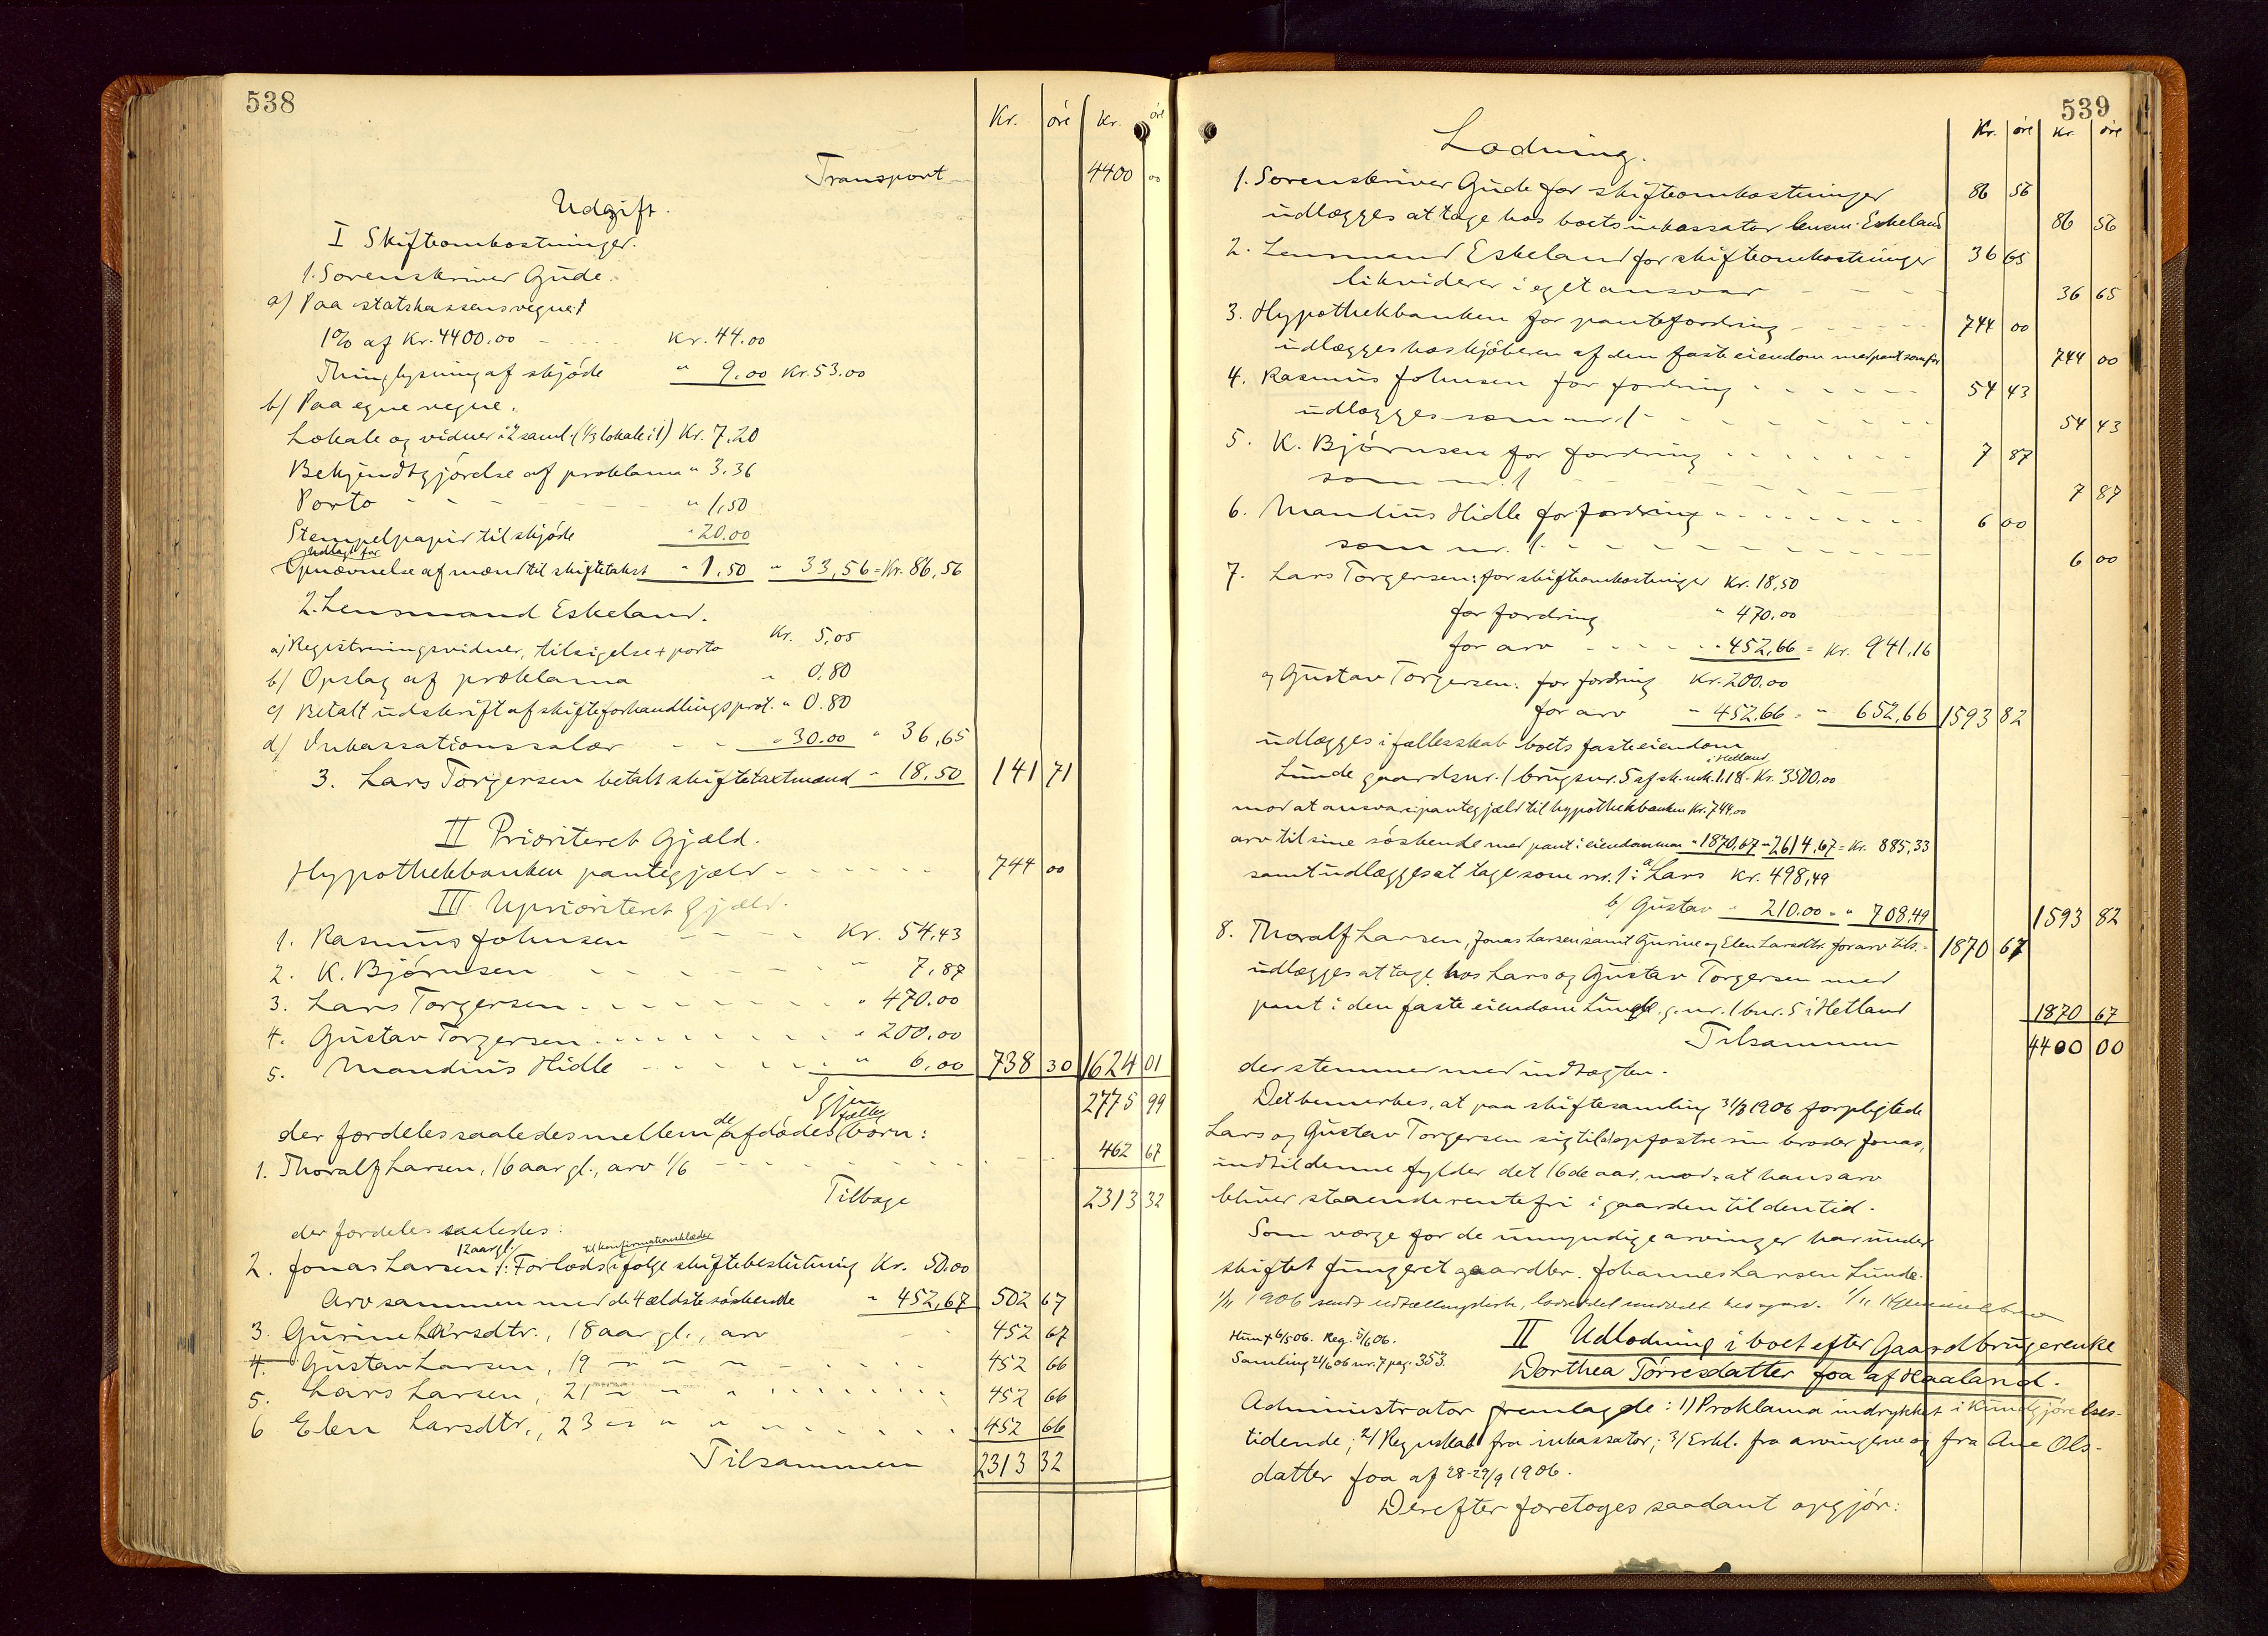 538
Kr. øre Kr. øre
Transport 4400 00
Udgift.
I Skifteomkostninger.
1. Sorenskriver Gude.
a) Paa statskassens vegne:
1% af Kr. 4400.00 - Kr. 44.00
Thinglysning af skjøde " 9.00 Kr. 53.00
b) Paa egne vegne.
Lokale og vidner i 2 saml. (1/3 lokale i 1) Kr. 7.20
Bekjendtgjørelse af proklama " 3.36
Porto - - - - " 1.50
Stempelpapir til skjøde " 20.00
Udlagt for
Opnævnelse af mænd til skiftetakst " 1.50 " 33,56 = Kr. 86,56
2. Lensmand Eskeland.
a) Registreringsvidner, tilsigelse + porto Kr. 5,05
b) Opslag af proklama " 0.80
c) Betalt udskrift af skifteforhandlingsprot. " 0.80
d) Inkassationssalær - - " 30.00 " 36,65
3. Lars Torgersen betalt skiftetaxtmænd " 18.50 141 71
II Prioriteret Gjæld.
Hypothekbanken pantegjæld - - - - - - 744 00
III Uprioriteret Gjæld.
1. Rasmus Johnsen - - - - Kr. 54,43
2. K. Bjørnsen - - - - - - " 7,87
3. Lars Torgersen - - - - - - " 470.00
4. Gustav Torgersen - - - - - - " 200.00
5. Mandius Hidle - - - - - - " 6,00 738 30 1624 01
Igjen 2775 99
der fordeles saaledes mellem de afdødes fælles børn:
1. Thoralf Larsen, 16 aar gl., arv 1/6 - - - - - - 462 67
Tilbage 2313 32
der fordeles saaledes:
2. Jonas Larsen 12 aar gl.: Forlods til konfirmationsklæder ifølge skiftebeslutning Kr. 50.00
Arv sammen med de 4 ældste søskende " 452,67 502 67
3. Gurine Larsdtr., 18 aar gl., arv 452 67
4. Gustav Larsen, 19 " " " - - - - 452 66
5. Lars Larsen, 21 " " " - - - - 452 66
6 Elen Larsdtr., 23 " " " - - - - 452 66
Tilsammen 2313 32
539
Kr. øre Kr. øre
Lodning.
1. Sorenskriver Gude for skifteomkostninger 86 56
udlægges at tage hos boets inkassator lensm. Eskeland 86 56
2. Lensmand Eskeland for skifteomkostninger 36 65
likviderer i eget ansvar - - - - 36 65
3. Hypothekbanken for pantefordring - - - - - 744 00
udlægges hos kjøberen af den faste eiendom med pant som før 744 00
4. Rasmus Johnsen for fordring - - - - - - 54 43
udlægges som nr. 1 - - - - - - 54 43
5. K. Bjørnsen for fordring - - - - - - 7 87
som nr. 1 - - - - - - 7 87
6. Mandius Hidle for fordring - - - - - - 6 00
som nr. 1 - - - - - - 6 00
7. Lars Torgersen: for skifteomkostninger Kr. 18,50
for fordring " 470.00
for arv - - - - " 452,66 = Kr. 941,16
og Gustav Torgersen: for fordring Kr. 200.00
for arv " 452,66 = " 652,66 1593 82
udlægges i fællesskab boets faste eiendom
Lunde gaardsnr. 1 brugsnr. 5 i Hetland af sk. mk. 1.18 - Kr. 3500.00
mod at ansvare: pantegjæld til hypothekbanken Kr. 744.00
arv til sine søskende med pant i eiendommen " 1870,67 " 2614,67 = Kr. 885,33
samt udlægges at tage som nr. 1: a) Lars Kr. 498,49
b) Gustav " 210.00 = " 708,49 1593 82
8. Thoralf Larsen, Jonas Larsen samt Gurine og Elen Larsdtr. for arv tils. - 1870 67
udlægges at tage hos Lars og Gustav Torgersen med
pant i den faste eiendom Lunde g.nr. 1 bnr. 5 i Hetland 1870 67
Tilsammen 4400 00
der stemmer med indtægten.
Det bemerkes, at paa skiftesamling 31/3 1906 forpligtede
Lars og Gustav Torgersen sig til at opfostre sin broder Jonas,
indtil denne fylder det 16de aar, mod, at hans arv
bliver staaende rentefri i gaarden til den tid.
Som værge for de umyndige arvinger har under
skiftet fungeret gaardbr. Johannes Larsen Lunde.
1/11 1906 sendt udtællingsliste,
Hun + 6/5 06. Reg. 5/6 06.
Samling 21/6 06 nr. 7 pag. 353.
II Udlodning i boet efter Gaardbrugerenke
Dorthea Tørresdatter foa af Haaland.
Administrator fremlagde: 1) Proklama indrykket i Kundgjørelses-
tidende; 2) Regnskab fra inkassator; 3) Erkl. fra arvingerne og fra Ane Ols-
datter foa af 28-29/9 1906.
Derefter foretoges saadant opgjør: